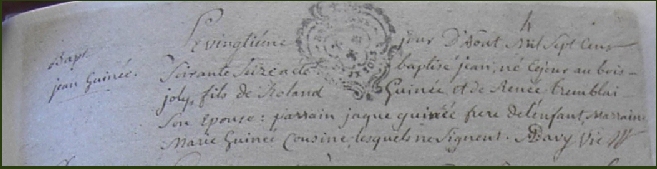 Bapt.
jean Guinée.
Le vingtième jour D'aout Mil Sept Cens
Soixante Seize a été baptisé jean, né le jour au bois-
joly, fils de Roland Guinée et de Renée tremblai
Son Epouse: parrain jaque guinée frere de l'enfant, Marraine
Marie Guinée Cousine lesquels ne Signent. Davy Vic